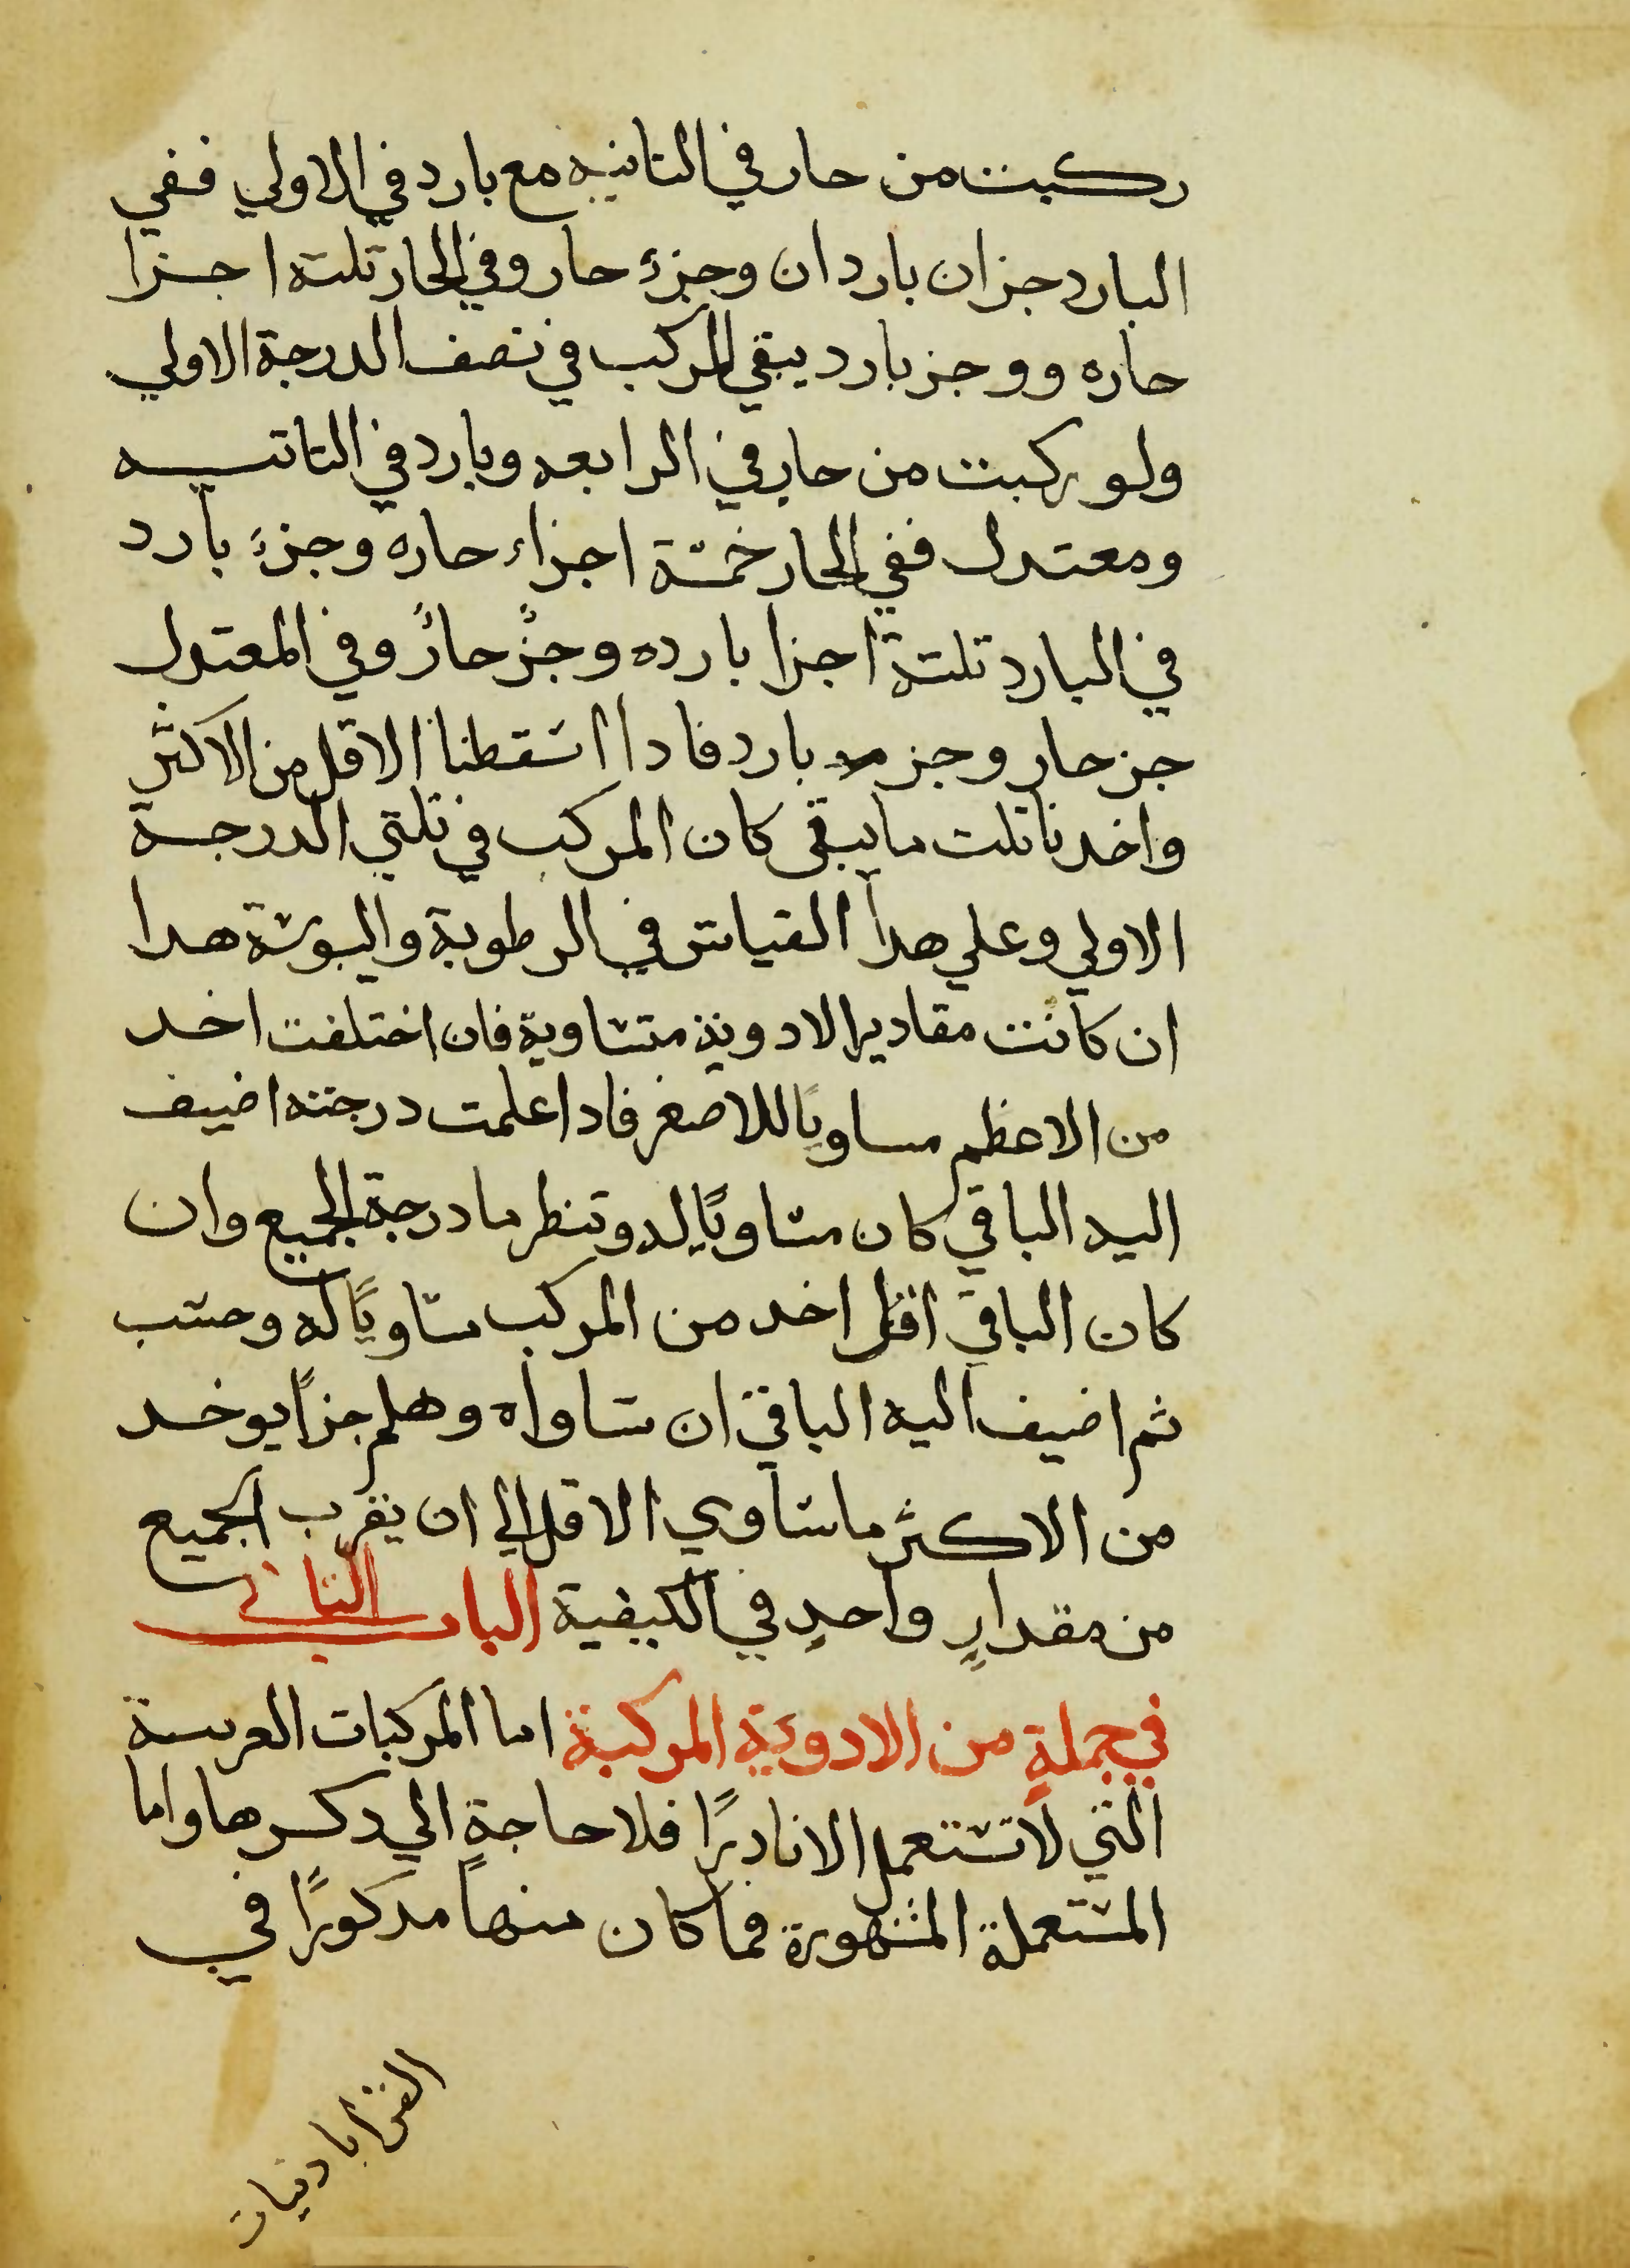 ركبت من حار في التانيه مع بارد في الاولي ففي
البارد جزان باردان وجزء حار وفي الحار تلتة اجزا
حاره ووجز بارد يبقي المركب في نصف الدرجة الاولي
ولو ركبت من حار في الرابعه وبارد في التانيه
ومعتدل ففي الحار خمسة اجزاء حاره وجزء بارد
في البارد تلتة اجزا بارده وجزٌ حارٌ وفي المعتدل
جز حار وجز بارد فادا اسقطنا الاقل من الاكثر
واخدنا تلت ما يبقى كان المركب في تلتي الدرجة
الاولي وعلي هدا القياس في الرطوبة واليبوسة هدا
ان كانت مقادير الادوية متساوية فان اختلفت اخد
من الاعظم مساويًا للاصغر فادا علمت درجته اضيف
اليه الباقي كان مساويًا له وتنظر ما درجة الجميع وان
كان الباقي اقل اخد من المركب مساويًا له وحسب
ثم اضيف اليه الباقي ان ساواه وهلم جزًا يوخد
من الاكثر ما ساوي الاقل الي ان يقرب الجميع
من مقدارٍ واحدٍ في الكيفية الباب التاني
في جملةٍ من الادوية المركبة اما المركبات الغريبة
التي لا تستعمل الا نادرًا فلا حاجةٍ الي دكرها واما
المستعملة المشهورة فما كان منها مدكورًا في
القراباديات